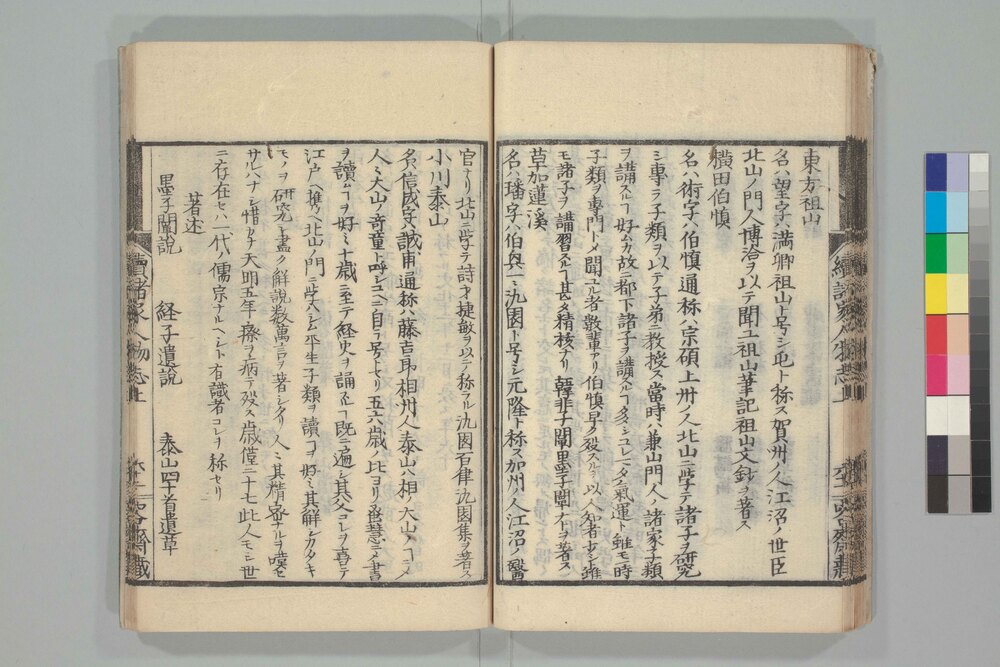 東方祖山
名ハ望字ハ満卿祖山ト号シ屯ト称ス賀州ノ人江沼ノ世臣
北山ノ門人博洽ヲ以テ聞ユ祖山筆記祖山文鈔ヲ著ス
横田伯慎
名ハ術字ハ伯慎通称ハ宗碩上州ノ人北山ニ学テ諸子ヲ研究
シ専ラ子類ヲ以テ子弟ニ教授ス當時ハ兼山門人諸家子類
ヲ講スルヿ好ムカ故ニ都下諸子ヲ講スルヿ多シコレ一タ氣運ト雖モ一時
子類ヲ専門トメ聞ユル者数輩アリ伯慎早ク殁スルヲ以人知者少シト雖
モ諸子ヲ講習スルヿ甚タ精核ナリ韓非子闡墨子闡ナトヲ著ス
草加蓮溪
名ハ璠字ハ伯與一ニ氿囦ト号シ元隆ト称ス加州ノ人江沼ノ醫
官ナリ北山ニ学テ詩才捷敏ヲ以テ称ラル氿囦百律氿囦集ヲ著ス
小川泰山
名ハ信成字ハ誠甫通称ハ藤吉郎相州人泰山ハ相ノ大山ノヿユヘ
人ミ大山ノ奇童ト呼シユヘニ自ラ号トセリ五六歳ノ比ヨリ發慧ニメ書
ヲ讀ムヿヲ好ミ十歳ニ至テ経史ヲ誦スルヿ既ニ遍シ其父コレヲ喜テ
江戸ヘ携ヘ北山ノ門ニ学ハシム平生子類ヲ讀ヿヲ好ミ其解シカタキ
モノヲ研究シ盡ク解説数萬言ヲ著シタリ人ミ其精密ナルヲ嘆セ
サルハナシ惜ヒカナ天明五年瘵ヲ病テ殁ス歳僅ニ十七此人モシ世
ニ存在セハ一代ノ儒宗ナルヘシト有識者コレヲ称セリ
著述
墨子闡説　経子遺説　泰山四十首遺草
續諸家人物志上